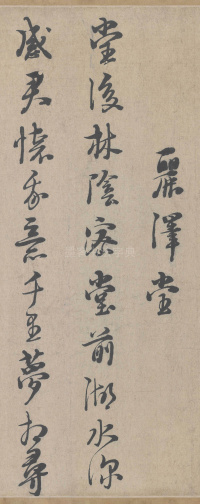 麗澤堂
堂後林陰密堂前湖水深
感君懷我意千里夢相尋